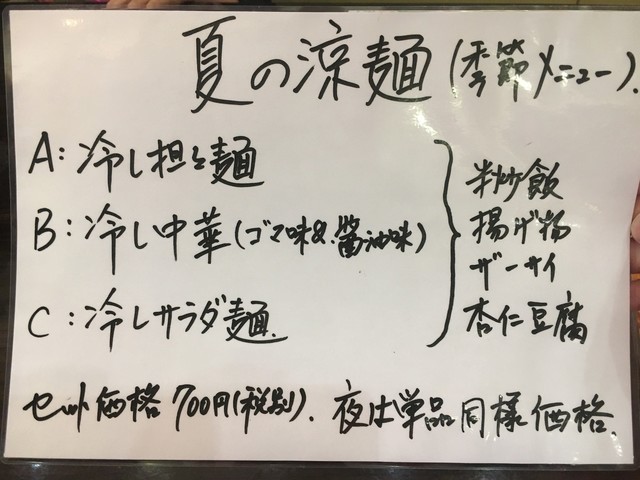 夏の涼麺(季節メニュー).
A:冷し担々麺
B:冷し中華(ゴマ味&醤油味)
C:冷しサラダ麺.
半炒飯
揚げ物
ザーサイ
杏仁豆腐
セット価格700円(税別).夜は単品同様価格.